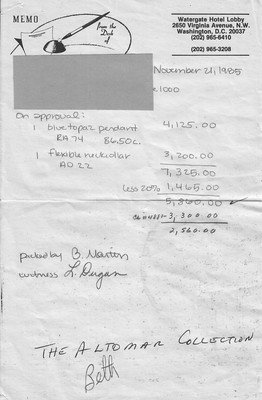 MEMO
from the
Desk
of
Watergate Hotel Lobby
2650 Virginia Avenue, N.W.
Washington, D.C. 20037
(202) 965-6410
(202) 965-3208
November 21, 1985
1000
On approval:
1 blue topaz pendant 4,125.00
RA 74 86.50 c.
1 flexible neck collar 3,200.00
AO 22 7,325.00
less 20% 1,465.00
5,860.00
3,300.00
2,560.00
picked by B. Martin
witness L. Dugan
THE ALTOMAR COLLECTION
Beth